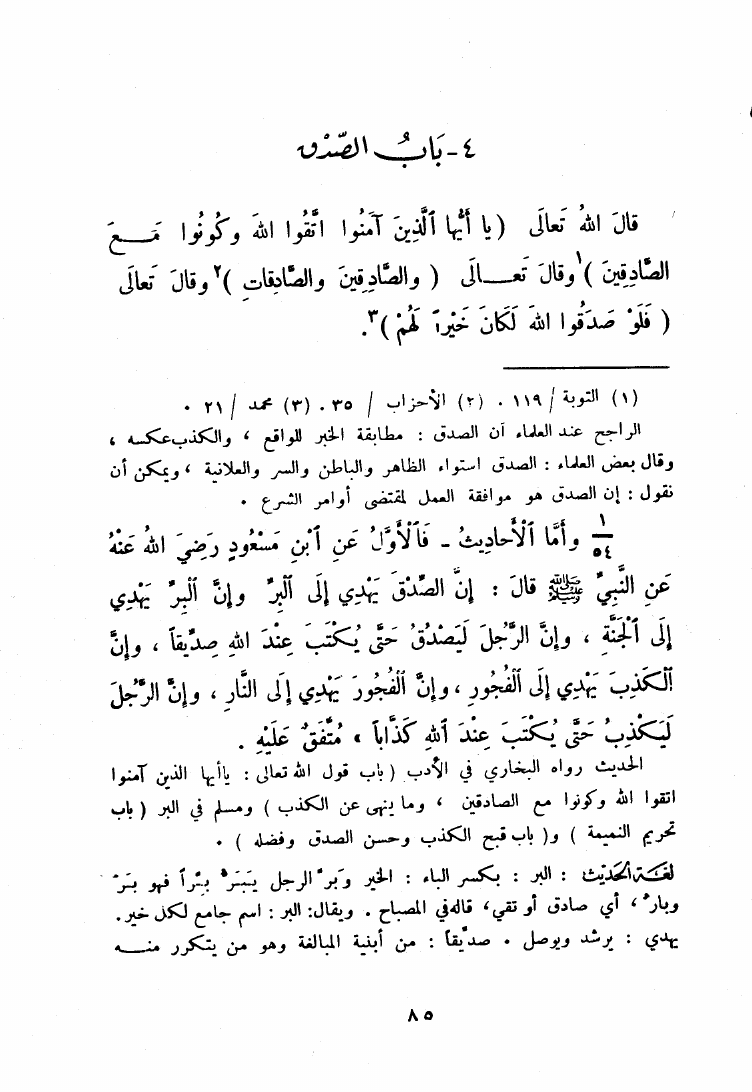 ٤ - بَابُ الصِّدْق
قالَ اللهُ تَعالَى (يا أَيُّها ٱلَّذِينَ آمَنُوا اتَّقُوا اللهَ وكُونُوا مَـعَ
الصَّادِقِينَ )١ وقالَ تَعـالَى ( والصَّادِقِينَ والصَّادِقاتِ )٢ وقالَ تَعالَى
( فَلَوْ صَدَقُوا اللهَ لَكَانَ خَيْراً لَهُمْ )٣.
(١) التوبة / ١١٩ . (٢) الأحزاب / ٣٥ . (٣) محمد / ٢١ .
الراجح عند العلماء أن الصدق : مطابقة الخبر للواقع ، والكذب عكسه ،
وقال بعض العلماء : الصدق استواء الظاهر والباطن والسر والعلانية ، ويمكن أن
نقول : إن الصدق هو موافقة العمل لمقتضى أوامر الشرع .
١/٥٤ وأَمَّا ٱلْأَحادِيثُ ـ فَٱلْأَوَّلُ عَنِ ٱبْنِ مَسْعُودٍ رَضِيَ اللهُ عَنْهُ
عَنِ النَّبِيِّ ﷺ قالَ : إنَّ الصِّدْقَ يَهْدِي إلَى ٱلْبِرِّ وإنَّ ٱلْبِرَّ يَهْدِي
إلَى ٱلْجَنَّةِ ، وإنَّ الرَّجُلَ لَيَصْدُقُ حَتَّى يُكْتَبَ عِنْدَ اللهِ صِدِّيقاً ، وإنَّ
ٱلْكَذِبَ يَهْدِي إلَى ٱلْفُجُورِ ، وإنَّ ٱلْفُجُورَ يَهْدِي إلَى النَّارِ ، وإنَّ الرَّجُلَ
لَيَكْذِبُ حَتَّى يُكْتَبَ عِنْدَ ٱللهِ كَذَّاباً » مُتَّفَقٌ عَلَيْهِ .
الحديث رواه البخاري في الأدب ( باب قول الله تعالى : ياأيها الذين آمنوا
اتقوا الله وكونوا مع الصادقين ، وما ينهى عن الكذب ) ومسلم في البر ( باب
تحريم النميمة ) و( باب قبح الكذب وحسن الصدق وفضله ) .
لغَة الحَديث : البر : بكسر الباء : الخير وَبرَّ الرجل يَبَرُّ بِرّاً فهو بَرّ
وبارّ ، أي صادق أو تقي ، قاله في المصباح . ويقال: البر : اسم جامع لكل خير .
يهدي : يرشد ويوصل . صدِّيقاً : من أبنية المبالغة وهو من يتكرر منـه
٨٥